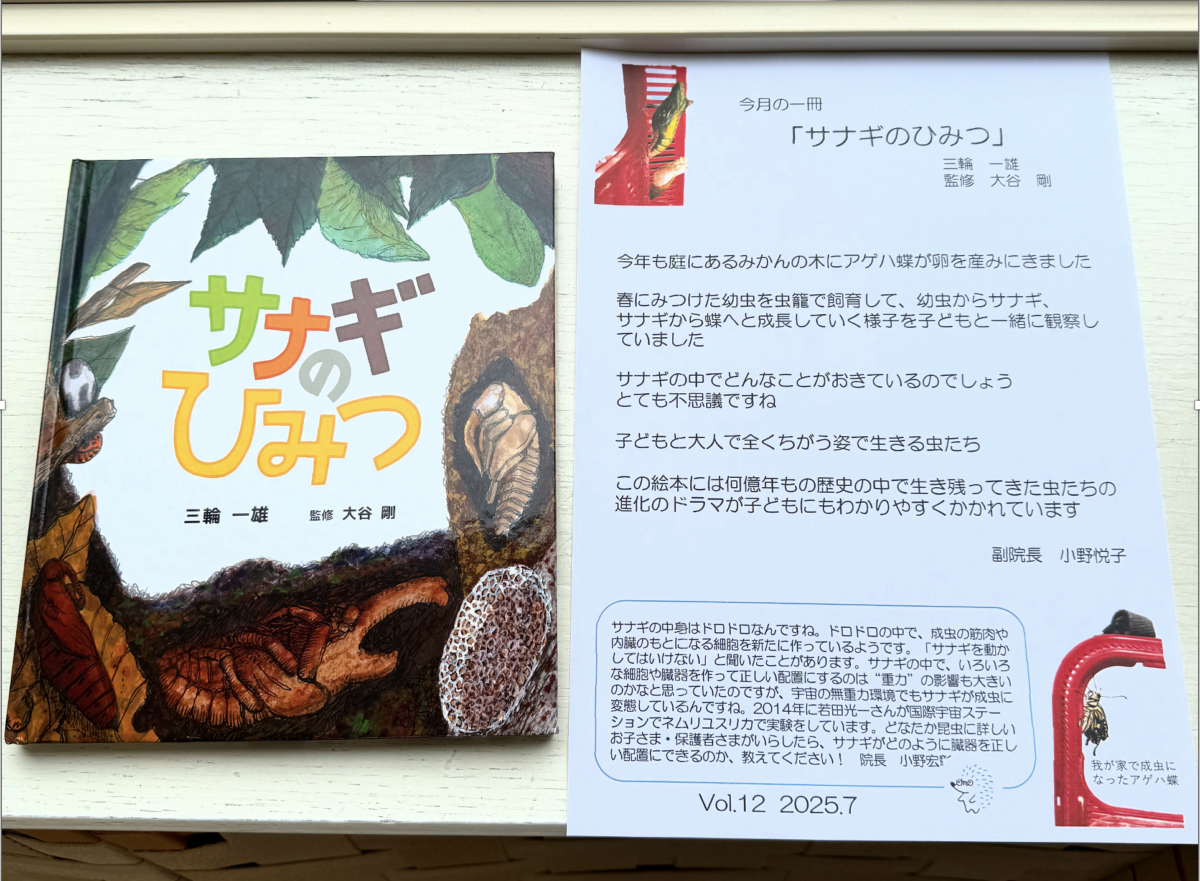 サナギ
の
ひみつ
三輪 一雄 監修 大谷 剛
今月の一冊
「サナギのひみつ」
三輪 一雄
監修 大谷 剛
今年も庭にあるみかんの木にアゲハ蝶が卵を産みにきました
春にみつけた幼虫を虫籠で飼育して、幼虫からサナギ、
サナギから蝶へと成長していく様子を子どもと一緒に観察し
ていました
サナギの中でどんなことがおきているのでしょう
とても不思議ですね
子どもと大人で全くちがう姿で生きる虫たち
この絵本には何億年もの歴史の中で生き残ってきた虫たちの
進化のドラマが子どもにもわかりやすくかかれています
副院長 小野悦子
サナギの中身はドロドロなんですね。ドロドロの中で、成虫の筋肉や
内臓のもとになる細胞を新たに作っているようです。「サナギを動か
してはいけない」と聞いたことがあります。サナギの中で、いろいろ
な細胞や臓器を作って正しい配置にするのは“重力”の影響も大きい
のかなと思っていたのですが、宇宙の無重力環境でもサナギが成虫に
変態しているんですね。2014年に若田光一さんが国際宇宙ステー
ションでネムリユスリカで実験をしています。どなたか昆虫に詳しい
お子さま・保護者さまがいらしたら、サナギがどのように臓器を正し
い配置にできるのか、教えてください! 院長 小野宏
我が家で成虫に
なったアゲハ蝶
Vol.12 2025.7